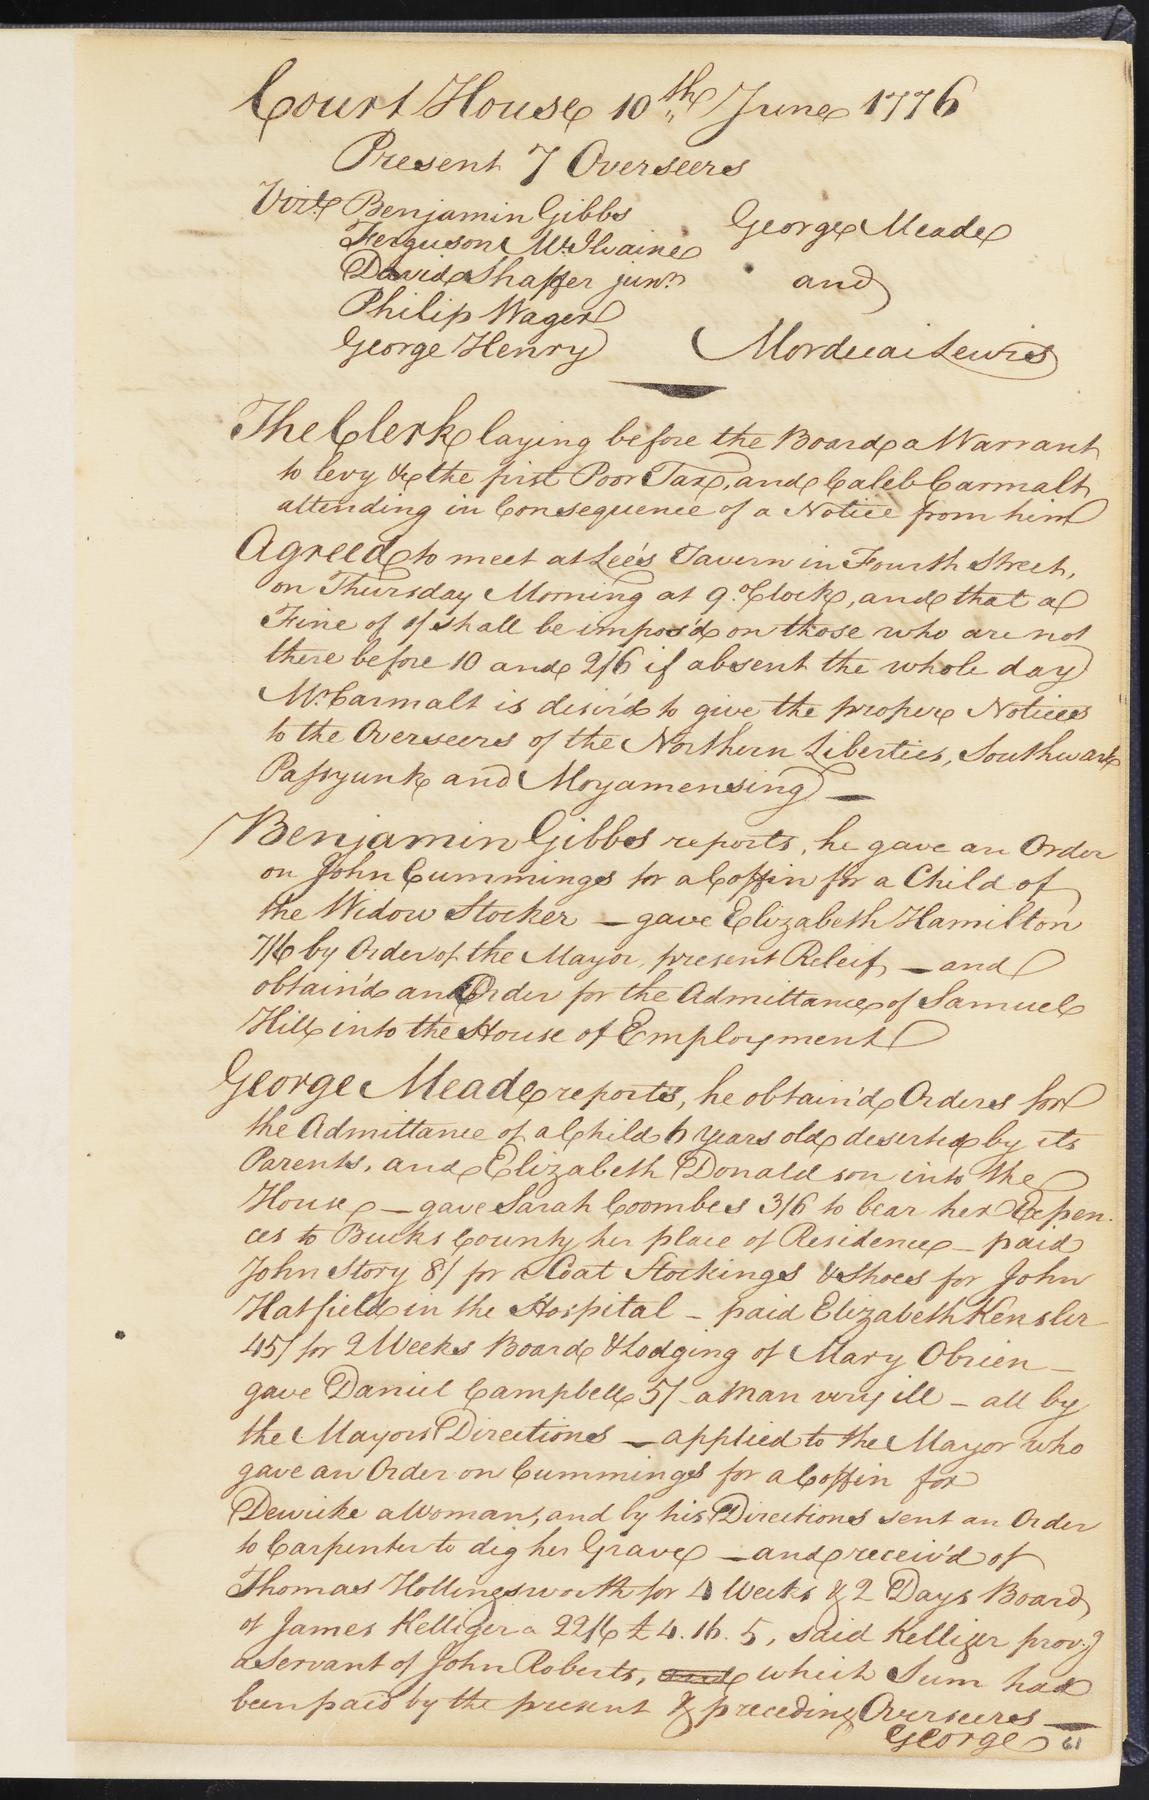 Court House 10th June 1776
Present 7 Overseers
Vizt Benjamin Gibbs
Ferguson McIlvaine
David Shaffer junr.
Philip Wager
George Henry
George Meade
and
Mordecai Lewis
The Clerk laying before the Board a Warrant
to levy &c the first Poor Tax, and Caleb Carmalt
attending in Consequence of a Notice from him
Agreed to meet at Lee's Tavern in Fourth Street,
on Thursday Morning at 9 oClock, and that a
Fine of 1/ shall be impos'd on those who are not
there before 10 and 2/6 if absent the whole day
Mr. Carmalt is desir'd to give the proper Notices
to the Overseers of the Northern Liberties, Southwark
Passyunk and Moyamensing —
Benjamin Gibbs reports, he gave an Order
on John Cummings for a Coffin for a Child of
the Widow Stocker — gave Elizabeth Hamilton
7/6 by Order of the Mayor, present Releif, — and
obtain'd an Order for the Admittance of Samuel
Hill into the House of Employment
George Meade reports, he obtain'd Orders for
the Admittance of a Child 6 Years old deserted by its
Parents, and Elizabeth Donaldson into the
House — gave Sarah Coombes 3/6 to bear her Expen-
ces to Bucks County her place of Residence — paid
John Story 8/ for a Coat Stockings & Shoes for John
Hatfield in the Hospital — paid Elizabeth Kensler
45/ for 2 Weeks Board & Lodging of Mary Obrien —
gave Daniel Campbell 5/ a Man very ill — all by
the Mayors Directions — applied to the Mayor who
gave an Order on Cummings for a Coffin for
Dewicke a Woman, and by his Directions sent an Order
to Carpenter to dig her Grave — and receiv'd of
Thomas Hollingsworth for 4 Weeks & 2 Days Board
of James Kelliger a 22/6 £4.16.5, said Kelliger prov.g
a Servant of John Roberts, and which Sum had
been paid by the present & preceding Overseers —
George
61